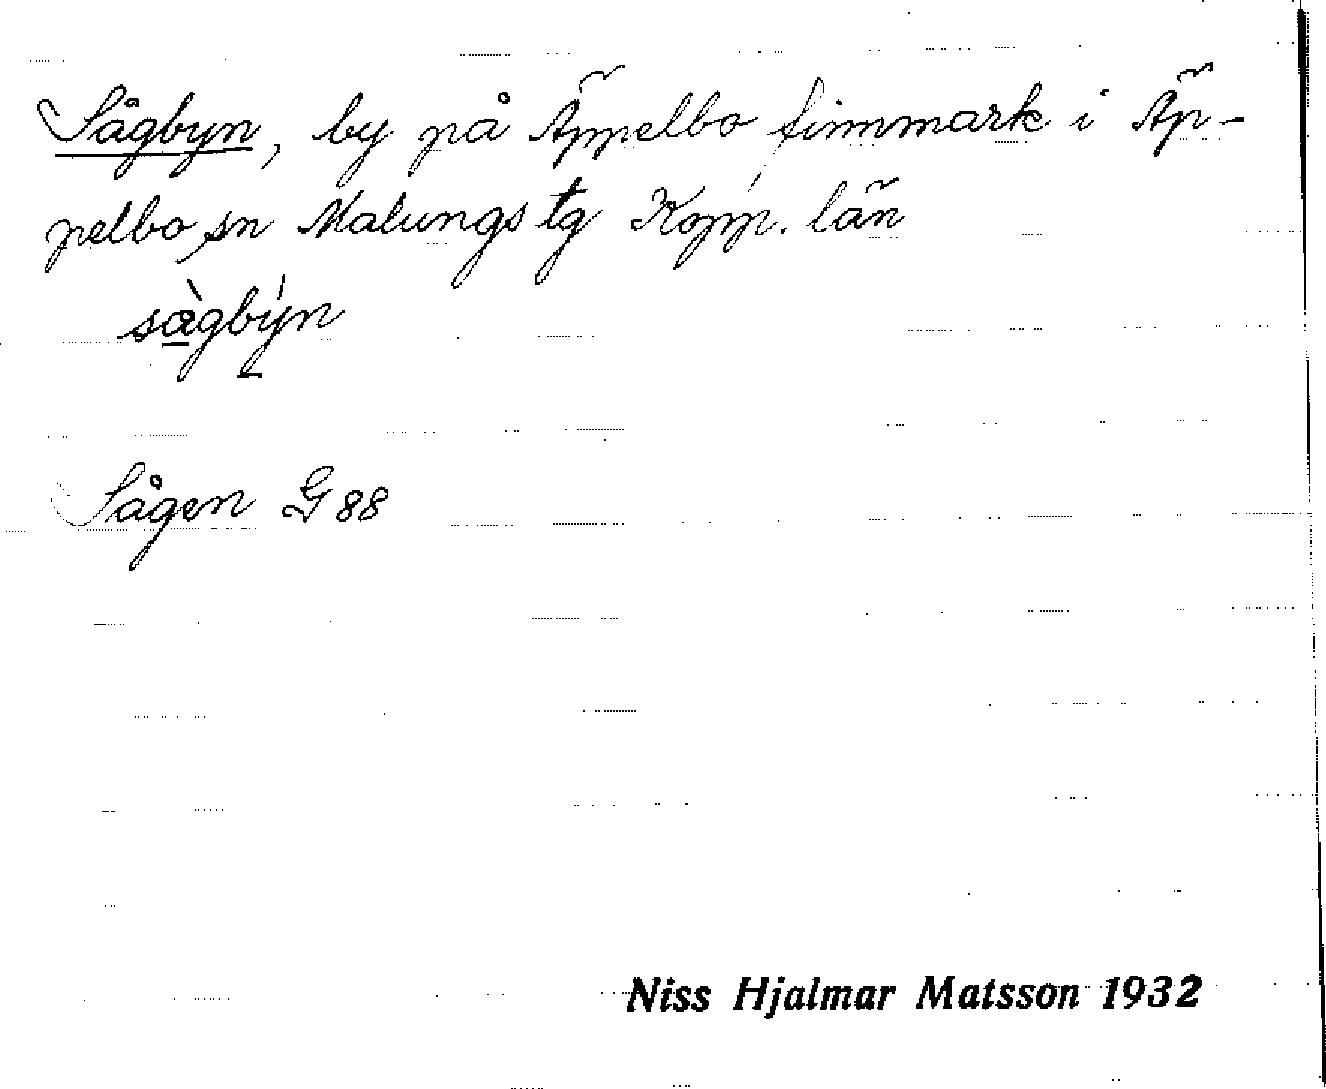 Sågbyn, by på Äppelbo finnmark i Äp-
pelbo sn Malungs tg Kopp. län
sàgbýn
Sågen G 88
Niss Hjalmar Matsson 1932